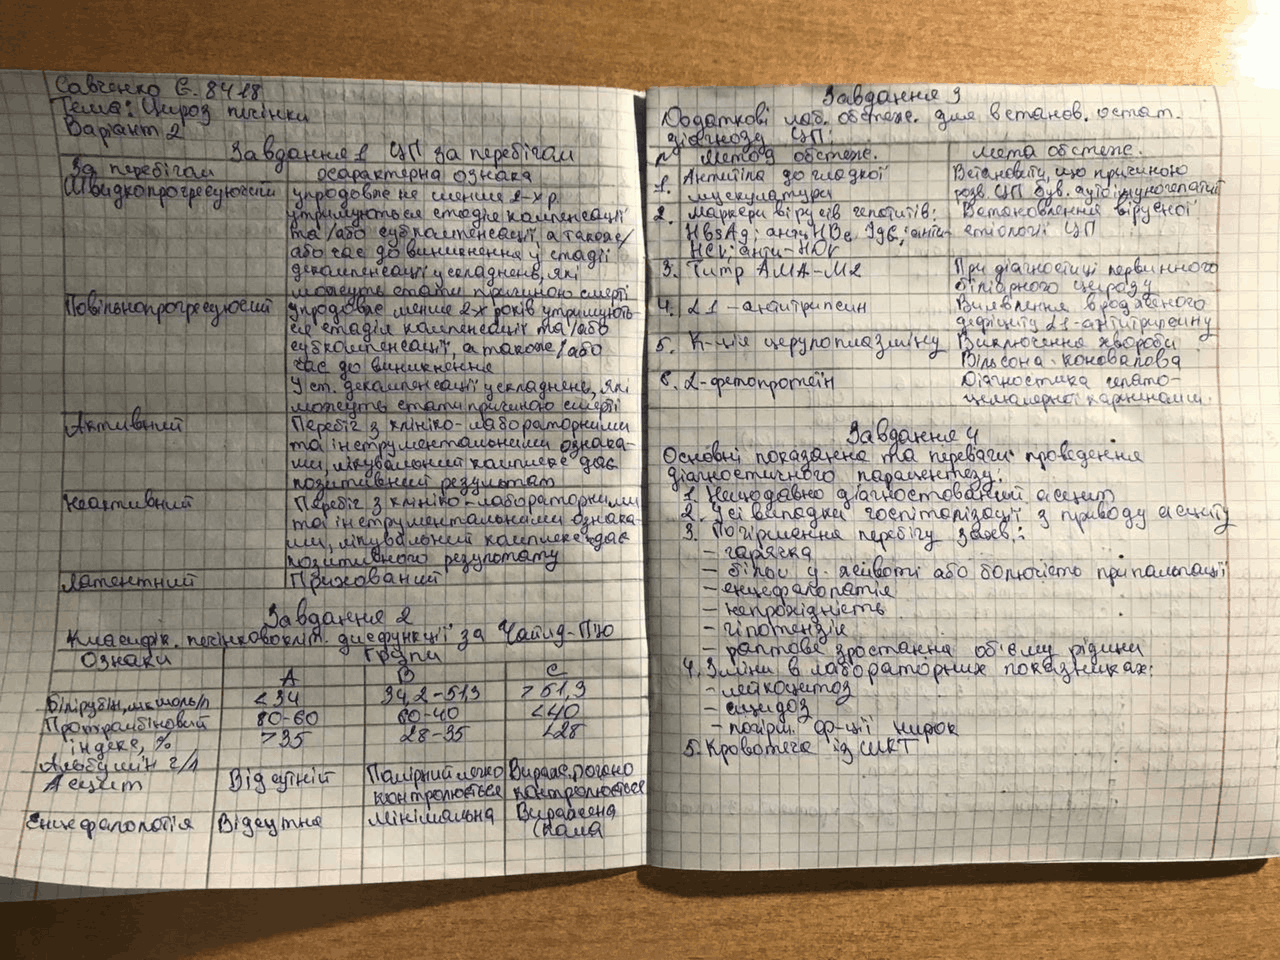 Савченко Є. 8418
Тема: Цироз печінки
Варіант 2
Завдання 1 ЦП за перебігом
За перебігом характерна ознака
Швидкопрогресуючий упродовж не менше 2-х р.
утримуються стадія компенсації
та/або субкомпенсації, а також/
або час до виникнення у стадії
декомпенсації ускладнень, які
можуть стати причиною смерті
Повільнопрогресуючий Упродовж менше 2-х років утримують
ся стадія компенсації та/або
субкомпенсації, а також/або
час до виникнення
у ст. декомпенсації ускладнень, які
можуть стати причиною смерті
Активний Перебіг з клініко-лабораторними
та інструментальними ознака-
ми, лікувальний комплекс дає
позитивний результат
Неактивний Перебіг з клініко-лабораторними
та інструментальними ознака-
ми, лікувальний комплекс дає
позитивного результату
Латентний Прихований
Завдання 2
Класифік. печінковокліт. дисфункції за Чайлд-П'ю
Ознаки Групи
А В С
Білірубін, мкмоль/л <34 34,2-51,3 >51,3
Протромбіновий 80-60 60-40 <40
індекс, % >35 28-35 <28
Альбумін г/л
Асцит Відсутній Помірний легко Вираж. погано
контролюється контролюється
Енцефалопатія Відсутня Мінімальна Виражена
(кома
Завдання 3
Додаткові лаб. обстеж. для встанов. остат.
діагнозу ЦП:
Метод обстеж. мета обстеж.
1. Антитіла до гладкої Встановити, що причиною
мускулатури розв. ЦП був. аутоімуногепатит
2. маркери вірусів гепатитів: Встановлення вірусної
HBsAg; антиHBc IgG; анти- етіології ЦП
HCV; анти-HDV
3. Титр АМА-М2 При діагностиці первинного
біліарного цирозу
4. α1-антитрипсин Виявлення вродженого
дефіциту α1-антитрипсину
5. К-ція церулоплазміну Виключення хвороби
Вільсона-Коновалова
6. α-фетопротеїн Діагностика гепато-
целюлярної карциноми.
Завдання 4
Основні показання та переваги проведення
діагностичного парацентезу:
1. Нещодавно діагностований асцит
2. Усі випадки госпіталізації з приводу асциту
3. Погіршення перебігу захв.:
- гарячка
- біль у животі або болючість при пальпації
- енцефалопатія
- непрохідність
- гіпотензія
- раптове зростання об'єму рідини
4. Зміни в лабораторних показниках:
- лейкоцитоз
- ацидоз
- погірш. ф-ції нирок
5. Кровотеча із ШКТ